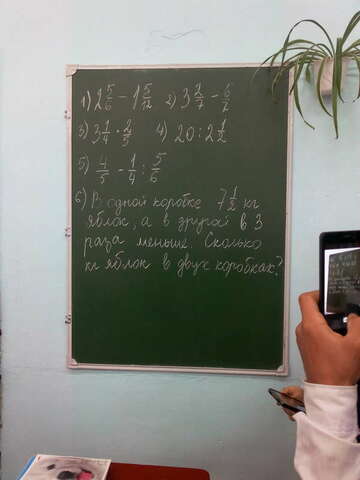 1) 2 5/6 - 1 5/12 2) 3 2/7 - 6/7
3) 3 1/4 · 2/5 4) 20 : 2 1/2
5) 4/5 - 1/4 : 5/6
6) В одной коробке 7 1/2 кг
яблок, а в другой в 3
раза меньше. Сколько
кг яблок в двух коробках?